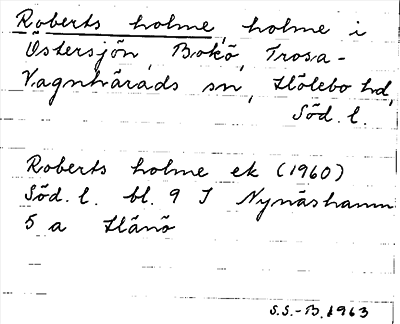 Roberts holme, holme i
Östersjön, Bokö, Trosa-
Vagnhärads sn, Hölebo hd,
Söd. l.
Roberts holme ek (1960)
Söd. l. bl. 9 I Nynäshamn
5 a Hänö
S.S.-B. 1963